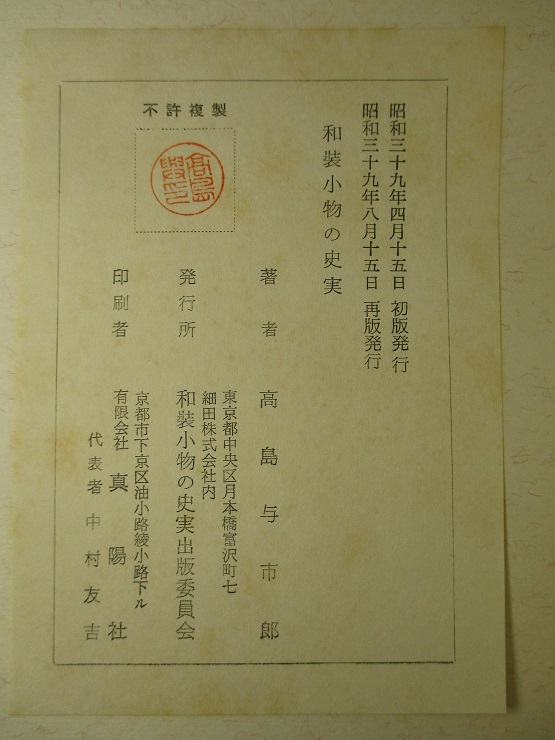 昭和三十九年四月十五日 初版発行
昭和三十九年八月十五日 再版発行
和装小物の史実
著者 高島与市郎
東京都中央区日本橋富沢町七
細田株式会社内
発行所 和装小物の史実出版委員会
京都市下京区油小路綾小路下ル
印刷者 有限会社 真陽社
代表者 中村友吉
不許複製